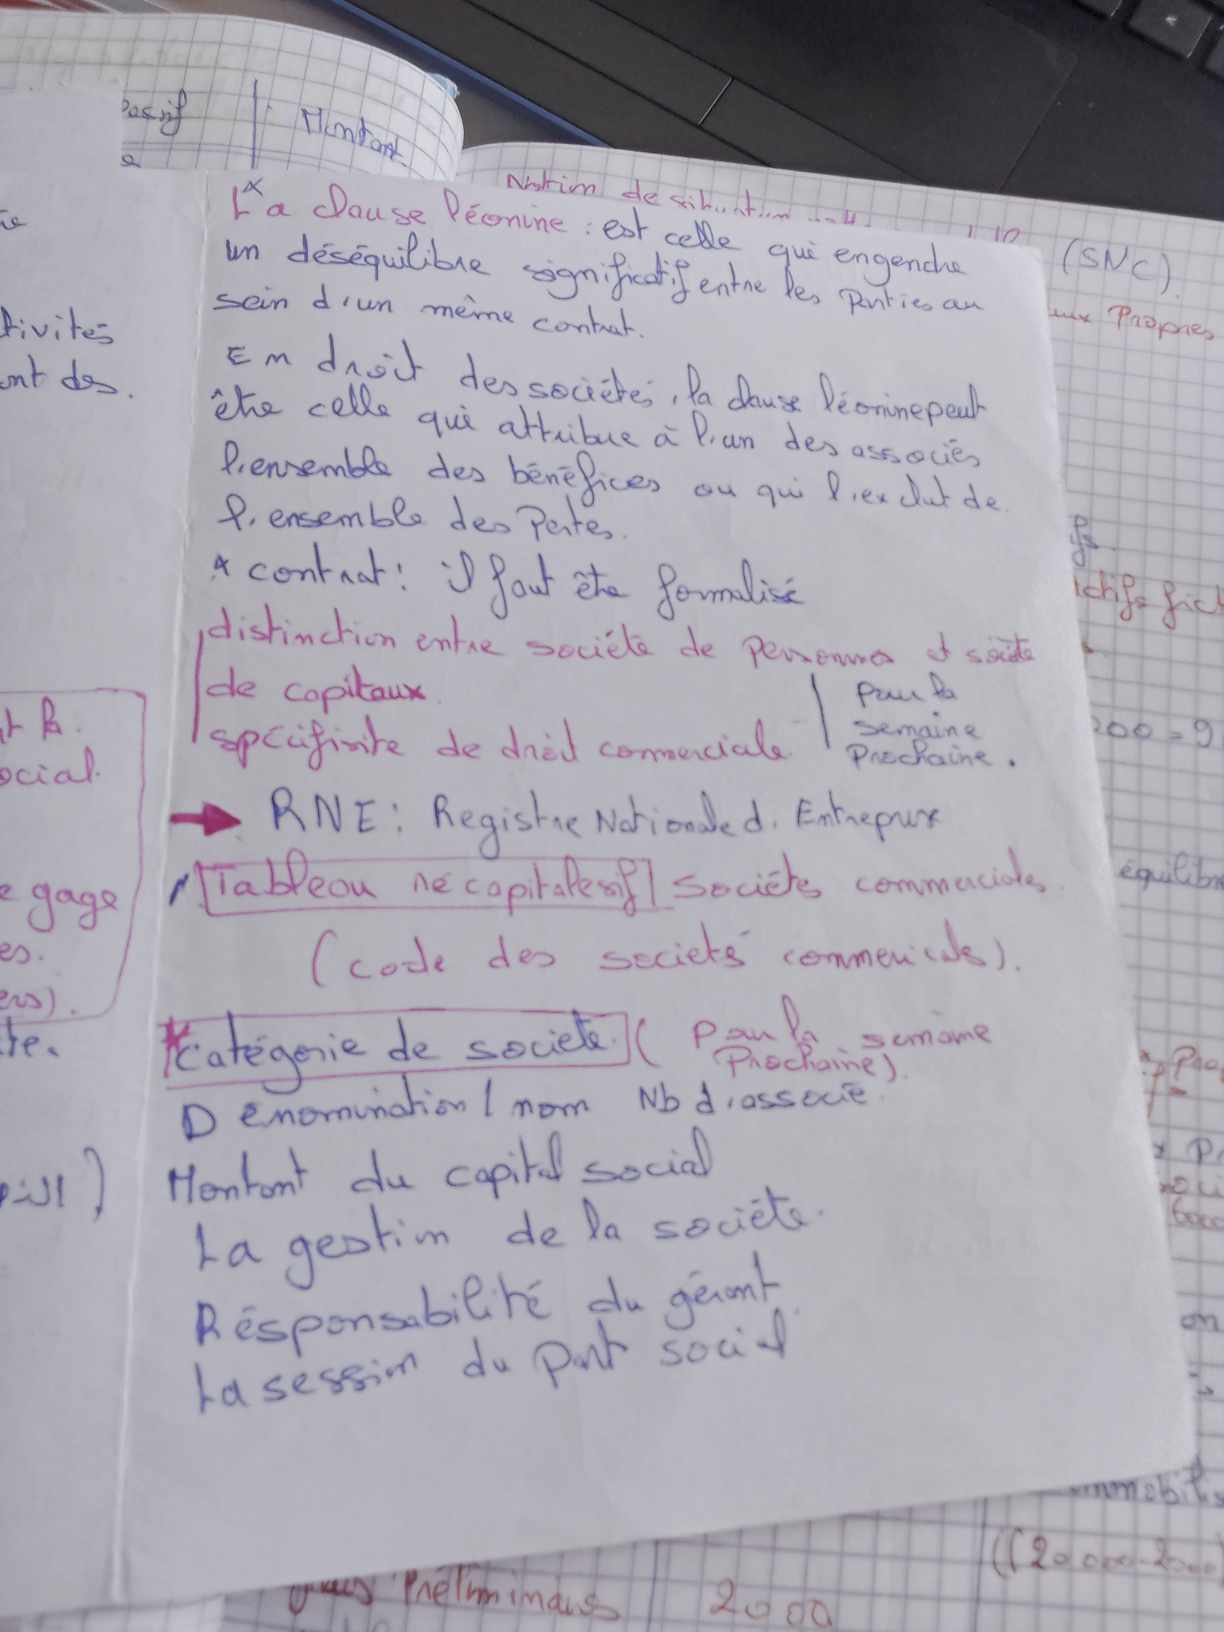 Passif
Montant
Notion de situation
(SNC).
Propres
La clause léonine : est celle qui engendre
un déséquilibre significatif entre les parties au
sein d'un même contrat.
En droit des sociétés, la clause léonine peut
être celle qui attribue à l'un des associés
l'ensemble des bénéfices ou qui l'exclut de
l'ensemble des Pertes.
* contrat : il faut être formalisé
distinction entre société de personnes et société
de capitaux.
spécifisite de droit commerciale
pour la
semaine
Prochaine.
→ RNE : Registre Nationale d'Entreprise
Tableau récapitalesif sociétés commerciales
(code des societés commericals).
* catégorie de société (Pour la semaine
Prochaine).
Dénomination / nom Nb d'associé.
Montant du capital social
La gestion de la société.
Résponsabilité du gérant
La session du part social
ctivités
ant des.
ocial.
e gage
es.
ers).
te.
ctifs fict
200 = 9
équilibre
mmobilis
((20 000-2000)
frais Préliminaires 2000